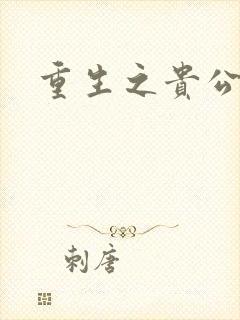 重生之貴公
刺唐